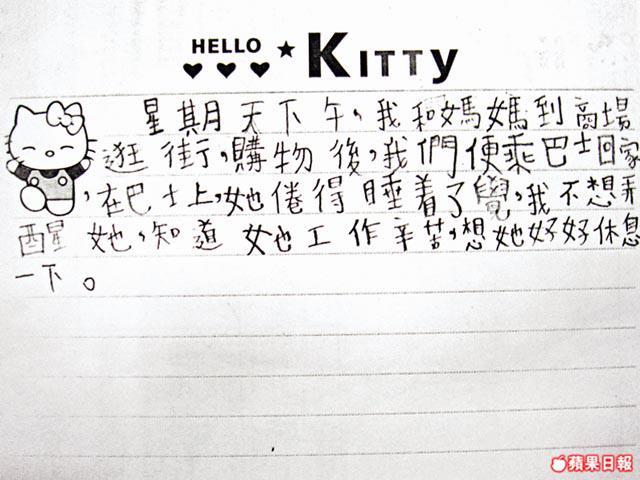 HELLO ★ KITTY
星期天下午,我和媽媽到商場
逛街,購物後,我們便乘巴士回家
,在巴士上,她倦得睡着了覺,我不想弄
醒她,知道她工作辛苦,想她好好休息
一下。
蘋果日報